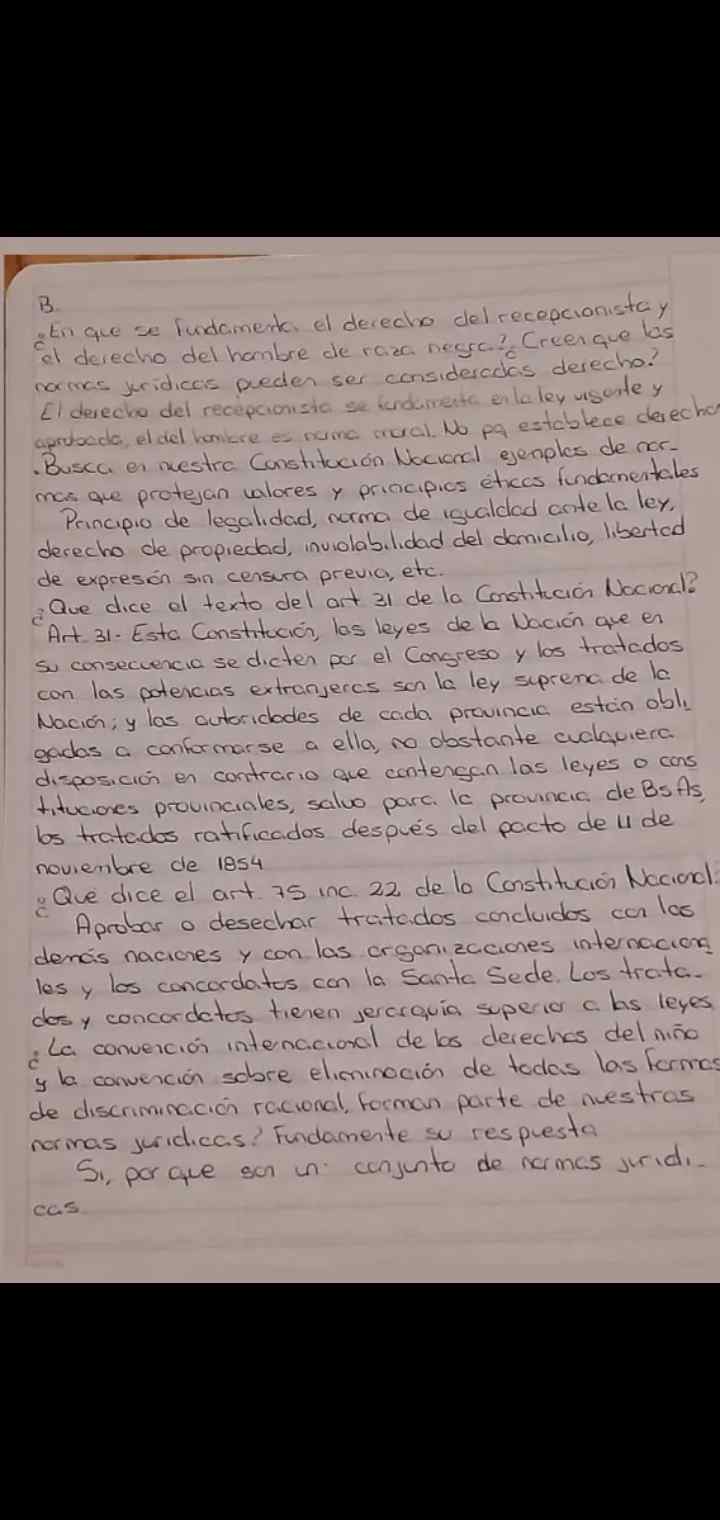 B.
¿En que se fundamenta el derecho del recepcionista y
el derecho del hombre de raza negra? ¿Creen que las
normas juridicas pueden ser consideradas derecho?
El derecho del recepcionista se fundamenta en la ley vigente y
aprobada, el del hombre es norma moral. No pq establece derecho
. Busca en nuestra Constitución Nacional ejemplos de nor-
mas que protejan valores y principios éticos fundamentales
Principio de legalidad, norma de igualdad ante la ley,
derecho de propiedad, inviolabilidad del domicilio, libertad
de expresión sin censura previa, etc.
¿Que dice el texto del art 31 de la Constitución Nacional?
Art. 31- Esta Constitución, las leyes de la Nación que en
su consecuencia se dicten por el Congreso y los tratados
con las potencias extranjeras son la ley suprema de la
Nación; y las autoridades de cada provincia están obli
gadas a conformarse a ella, no obstante cualquiera
disposición en contrario que contengan las leyes o cons
tituciones provinciales, salvo para la provincia de Bs As,
los tratados ratificados después del pacto de 11 de
noviembre de 1854
¿Qué dice el art. 75 inc. 22 de la Constitución Nacional?
Aprobar o desechar tratados concluidos con las
demás naciones y con las organizaciones internaciona
les y los concordatos con la Santa Sede. Los trata-
dos y concordatos tienen jerarquía superior a las leyes
¿La convención internacional de los derechos del niño
y la convención sobre eliminación de todas las formas
de discriminación racional, forman parte de nuestras
normas juridicas? Fundamente su respuesta
Si, por que son un conjunto de normas juridi-
cas.